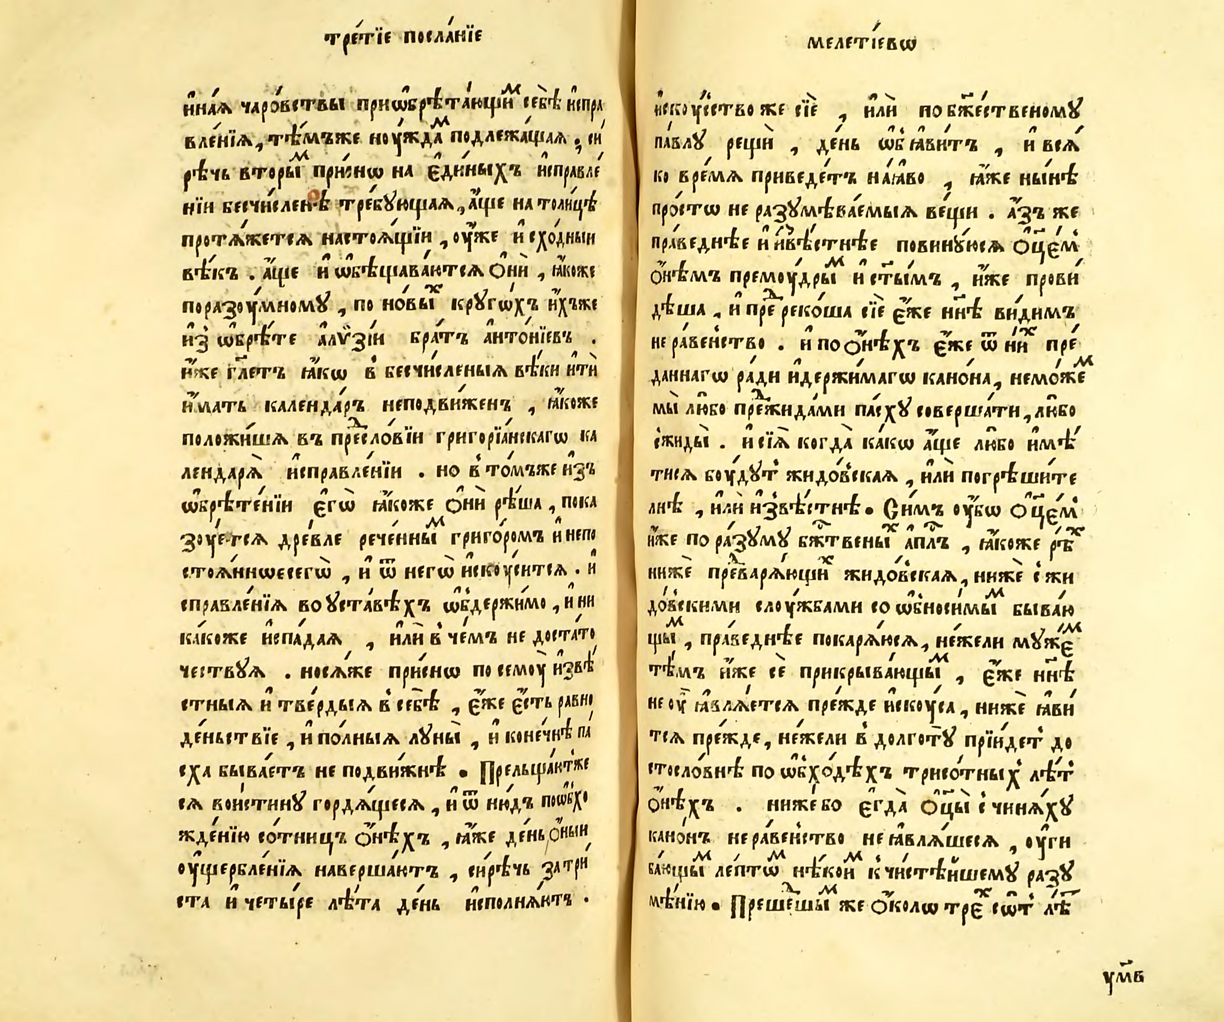 тре́тїе посла́нїе
и҆на́ѧ чаро́вствы приѡбрѣта́ющиⷨ себѣ̀ и҆спра
вле́нїѧ, тѣ́мъже ноу́ждаⷨ подлежа́щаѧ, сѝ
рѣ́чь вторы́ⷨ при́снѡ на є҆ди́ныхъ и҆справле́
нїи бесчи́сленѣ тре́бꙋющаѧ, а҆́ще на толи́цѣ
протѧ́жетсѧ настоѧ́щїи, ѹ҆́же и҆ схо́дныи
вѣ́къ . а҆́ще и҆ ѡ҆бѣщава́ютсѧ ѻ҆нѝ, ꙗ҆́коже
поразоу́мномꙋ, по но́выⷯ крꙋгѡ́хъ и҆́хъже
и҆з̾ѡбрѣ́те алѵ́зїи бра́тъ анто́нїевъ .
и҆́же гл҃етъ ꙗ҆́кѡ в̾ бесчи́сленыѧ вѣ́ки и҆тѝ
и҆́мать календа́ръ неподви́женъ , ꙗ҆́коже
положи́шѧ въ преⷣсло́вїи григорїа́нскагѡ ка
лендарѧ̀ и҆справле́нїи . но в̾ то́мъже и҆зъ
ѡбрѣте́нїи є҆гѡ̀ ꙗ҆́коже ѻ҆нѝ рѣ́ша, пока
зꙋ́етсѧ дре́вле рече́нныⷨ григо́ромъ и҆ непо
стоѧ́нноесегѡ̀ , и҆ ѿ негѡ̀ и҆скоу́ситсѧ . и҆
справле́нїѧ во ꙋ҆ста́вѣхъ ѡ҆бдержи́мо, и҆ ни
ка́коже и҆спа́даѧ , и҆лѝ в̾ че́мъ не доста́то
чествꙋѧ . носѧ́же при́снѡ по семоу̀ и҆звѣ́
стныѧ и҆ тве́рдыѧ в̾ себѣ̀ , є҆́же є҆́сть равно
де́ньствїе , и҆ по́лныѧ лꙋны̀ , и҆ коне́чнѣ па́
сха быва́етъ не подви́жнѣ . Прельща́ютже
сѧ вои́стинꙋ гордѧ́щесѧ , и҆ ѿ ню́дъ поѡбхо
жде́нїю со́тницъ ѻ҆́нѣхъ , ꙗ҆́же де́нь ѻ҆́ныи
ѹ҆щербле́нїѧ наверша́ютъ , си́рѣчь за трѝ
ста и҆ четы́ре лѣ́та де́нь и҆сполнѧ́ютъ .
меле́тїевѡ
и҆скоу́ство же сїѐ , и҆лѝ по бж҃е́ственомꙋ
па́влꙋ рещѝ , де́нь ѡ҆б̾ѧви́тъ , и҆ всѧ̀
ко вре́мѧ приведе́тъ наѧ́во , ꙗ҆́же ны́нѣ
про́стѡ не разꙋмѣва́емыѧ ве́щи . а҆́зъ же
пра́веднѣе и҆ и҆звѣ́стнѣе повинꙋ́юсѧ ѻ҆ц҃е́мъ
ѻ҆́нѣмъ премоу́дрыⷨ и҆ ст҃ы́мъ , и҆́же прови́
дѣша , и҆ преⷣреко́ша сїѐ є҆́же нн҃ѣ ви́димъ
не ра́венство . и҆ по ѻ҆́нѣхъ є҆́же ѿ ни́ⷯ пре́
даннагѡ ра́ди и҆ держи́магѡ кано́на, немо́жеⷨ
мы̀ любо преⷤжида́ми па́схꙋ соверша́ти, лю́бо
сжиды̀ . и҆ сїѧ̀ когда̀ ка́кѡ а҆́ще лю́бо и҆мѣ́
тисѧ боу́дꙋт̾ жидо́вскаѧ , и҆лѝ погрѣши́те
лнѣ , и҆лѝ и҆звѣ́стнѣ . Си́мъ ѹ҆́бѡ ѻ҆ц҃е́мъ
и҆́же по ра́зꙋмꙋ бж҃твены́ⷯ ап҃лъ , ꙗ҆́коже рѣ́ⷯ
нижѐ преⷣварѧ́ющиⷯ жидо́вскаѧ, нижѐ с̾ жи
до́вскими слоу́жбами со ѡбноси́мыⷨ быва́ю
щыⷨ , пра́веднѣе покарѧ́юсѧ, не́жели мꙋже́ⷨ
тѣ́мъ и҆́же сѐ прикрыва́ющыⷨ , є҆́же нн҃ѣ
не оу҆̀ ꙗ҆влѧ́етсѧ пре́жде и҆скоу́са , нижѐ ꙗ҆ви́
тсѧ пре́жде, не́жели в̾ долготꙋ̀ прїи́дет̾ до
стосло́внѣ по ѡбхо́дѣхъ трисо́тных̾ лѣ́т̾
ѻ҆́нѣхъ . ниже́бо є҆гда̀ ѻ҆ц҃ы̀ с̾чинѧ́хꙋ
кано́нъ нера́венство не ꙗ҆влѧ́шесѧ , ѹ҆ги
ба́ющыⷨ лептѡ́ⷨ нѣ́коиⷨ к̾ чистѣ́йшемꙋ разꙋ
мѣ́нїю . Преⷲше́шыⷨ же ѻ҆́колѡ тре́ⷯ сѡ́т̾ лѣ́ⷮ
ꙋм҃в